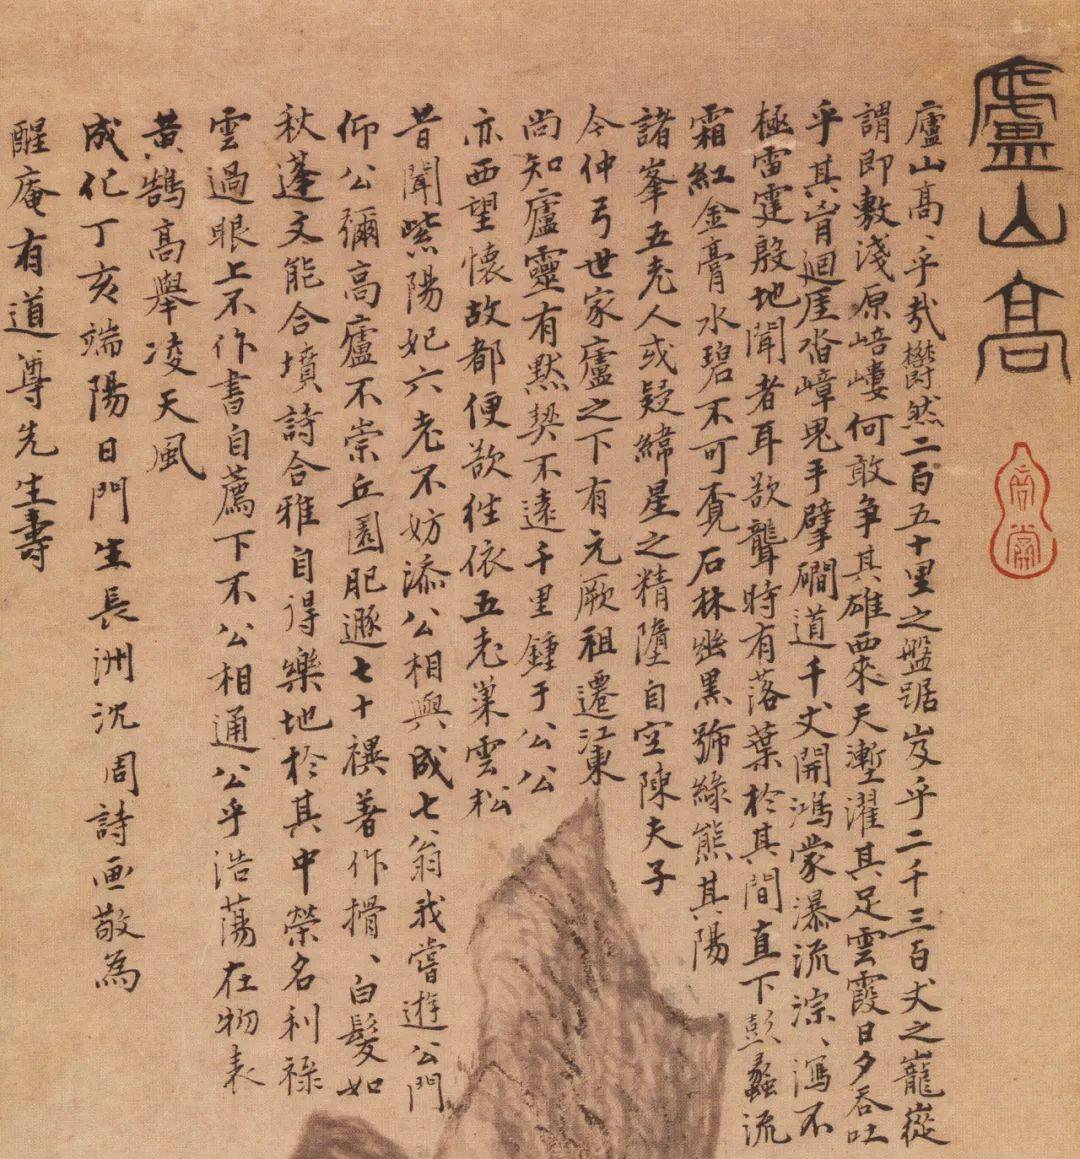 廬山高
廬山高、乎哉欝然二百五十里之盤踞岌乎二千三百丈之巃嵷
謂即敷淺原嶁何敢爭其雄西來天塹濯其足雲霞日夕吞吐
乎其胷迴崖沓嶂鬼手擘磵道千丈開鴻蒙瀑流淙、瀉不
極雷霆殷地聞者耳欲聾時有落葉於其間直下彭蠡流
霜紅金膏水碧不可覔石林幽黑號綠熊其陽
諸峯五老人或疑緯星之精墮自空陳夫子
今仲弓世家廬之下有元厥祖遷江東
尚知廬靈有默契不遠千里鍾于公公
亦西望懷故都便欲往依五老巢雲松
昔聞紫陽妃六老不妨添公相與成七翁我嘗遊公門
仰公彌高廬不崇丘園肥遯七十禩著作搰、白髮如
秋蓬文能合墳詩合雅自得樂地於其中榮名利祿
雲過眼上不作書自薦下不公相通公乎浩蕩在物表
黃鵠高舉凌天風
成化丁亥端陽日門生長洲沈周詩画敬為
醒庵有道尊先生壽